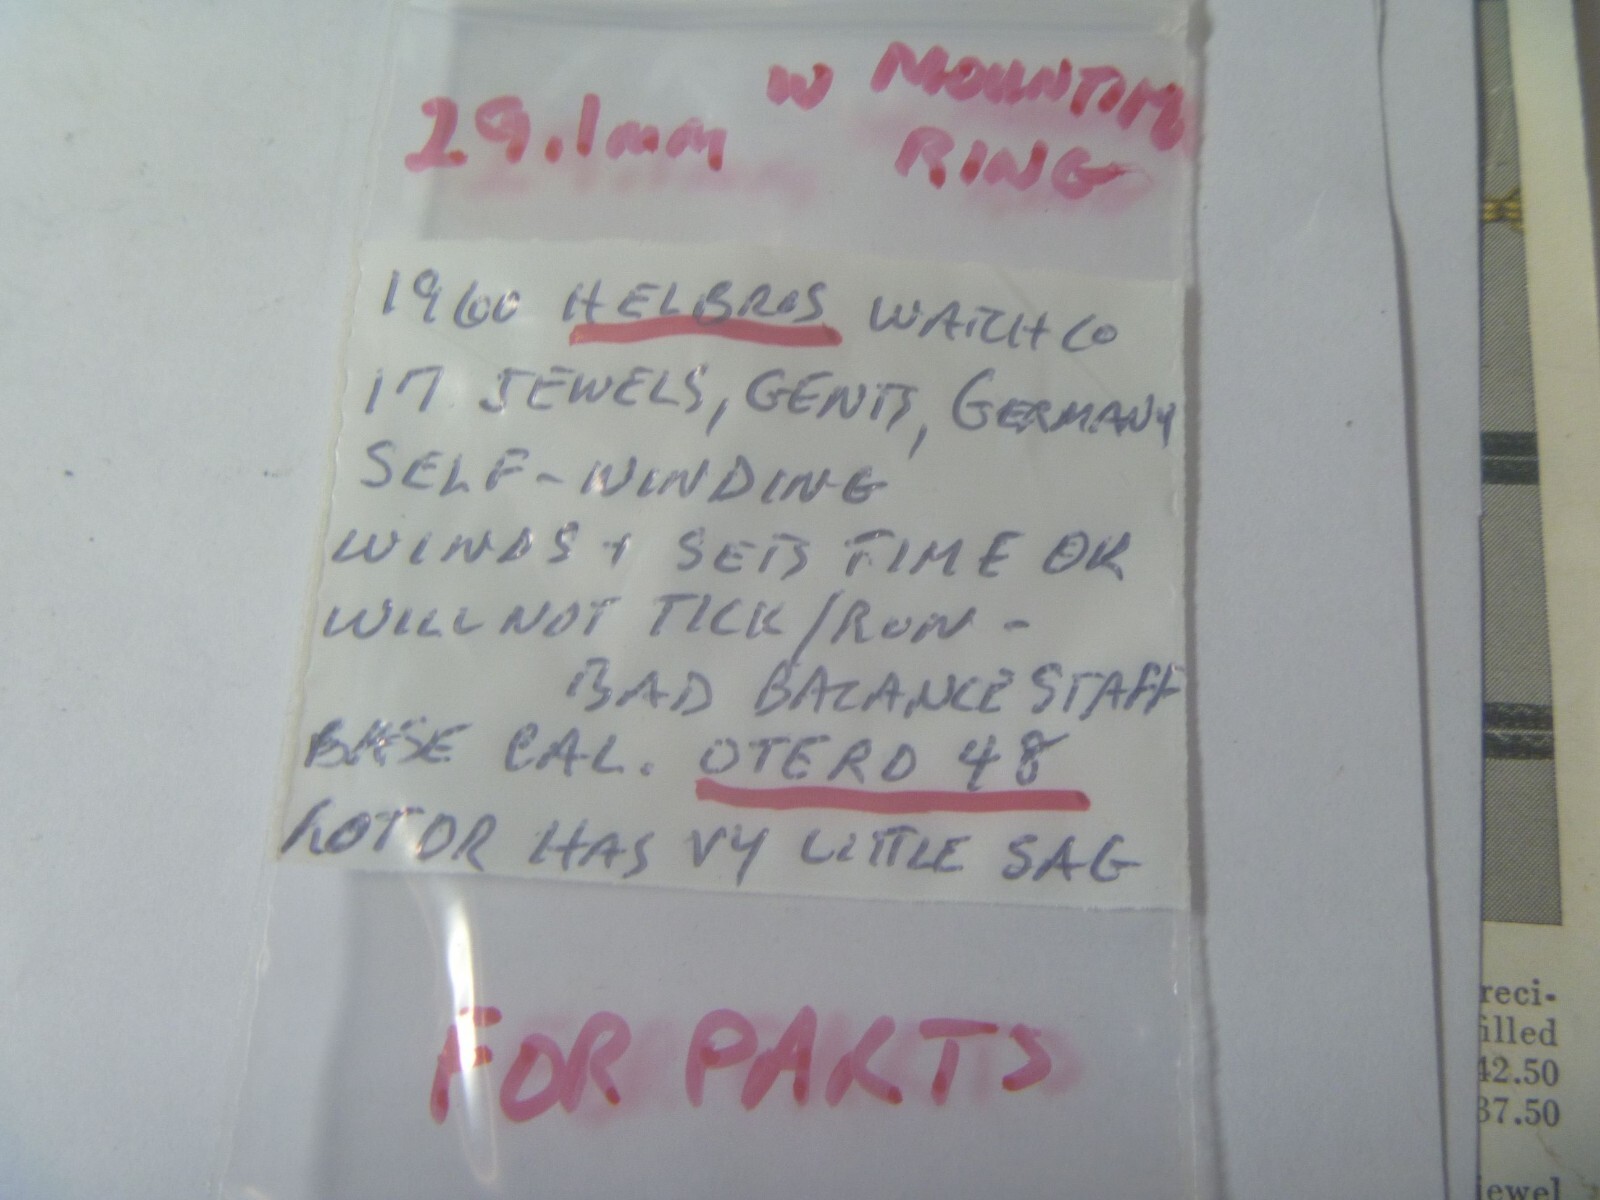 29.1mm W MOUNTING
RING
1960 HELBROS WATCH CO
17 JEWELS, GENTS, GERMANY
SELF-WINDING
WINDS + SETS TIME OK
WILL NOT TICK/RUN -
BAD BALANCE STAFF
BASE CAL. OTERO 48
ROTOR HAS VY LITTLE SAG
FOR PARTS
reci-
filled
42.50
37.50
jewel